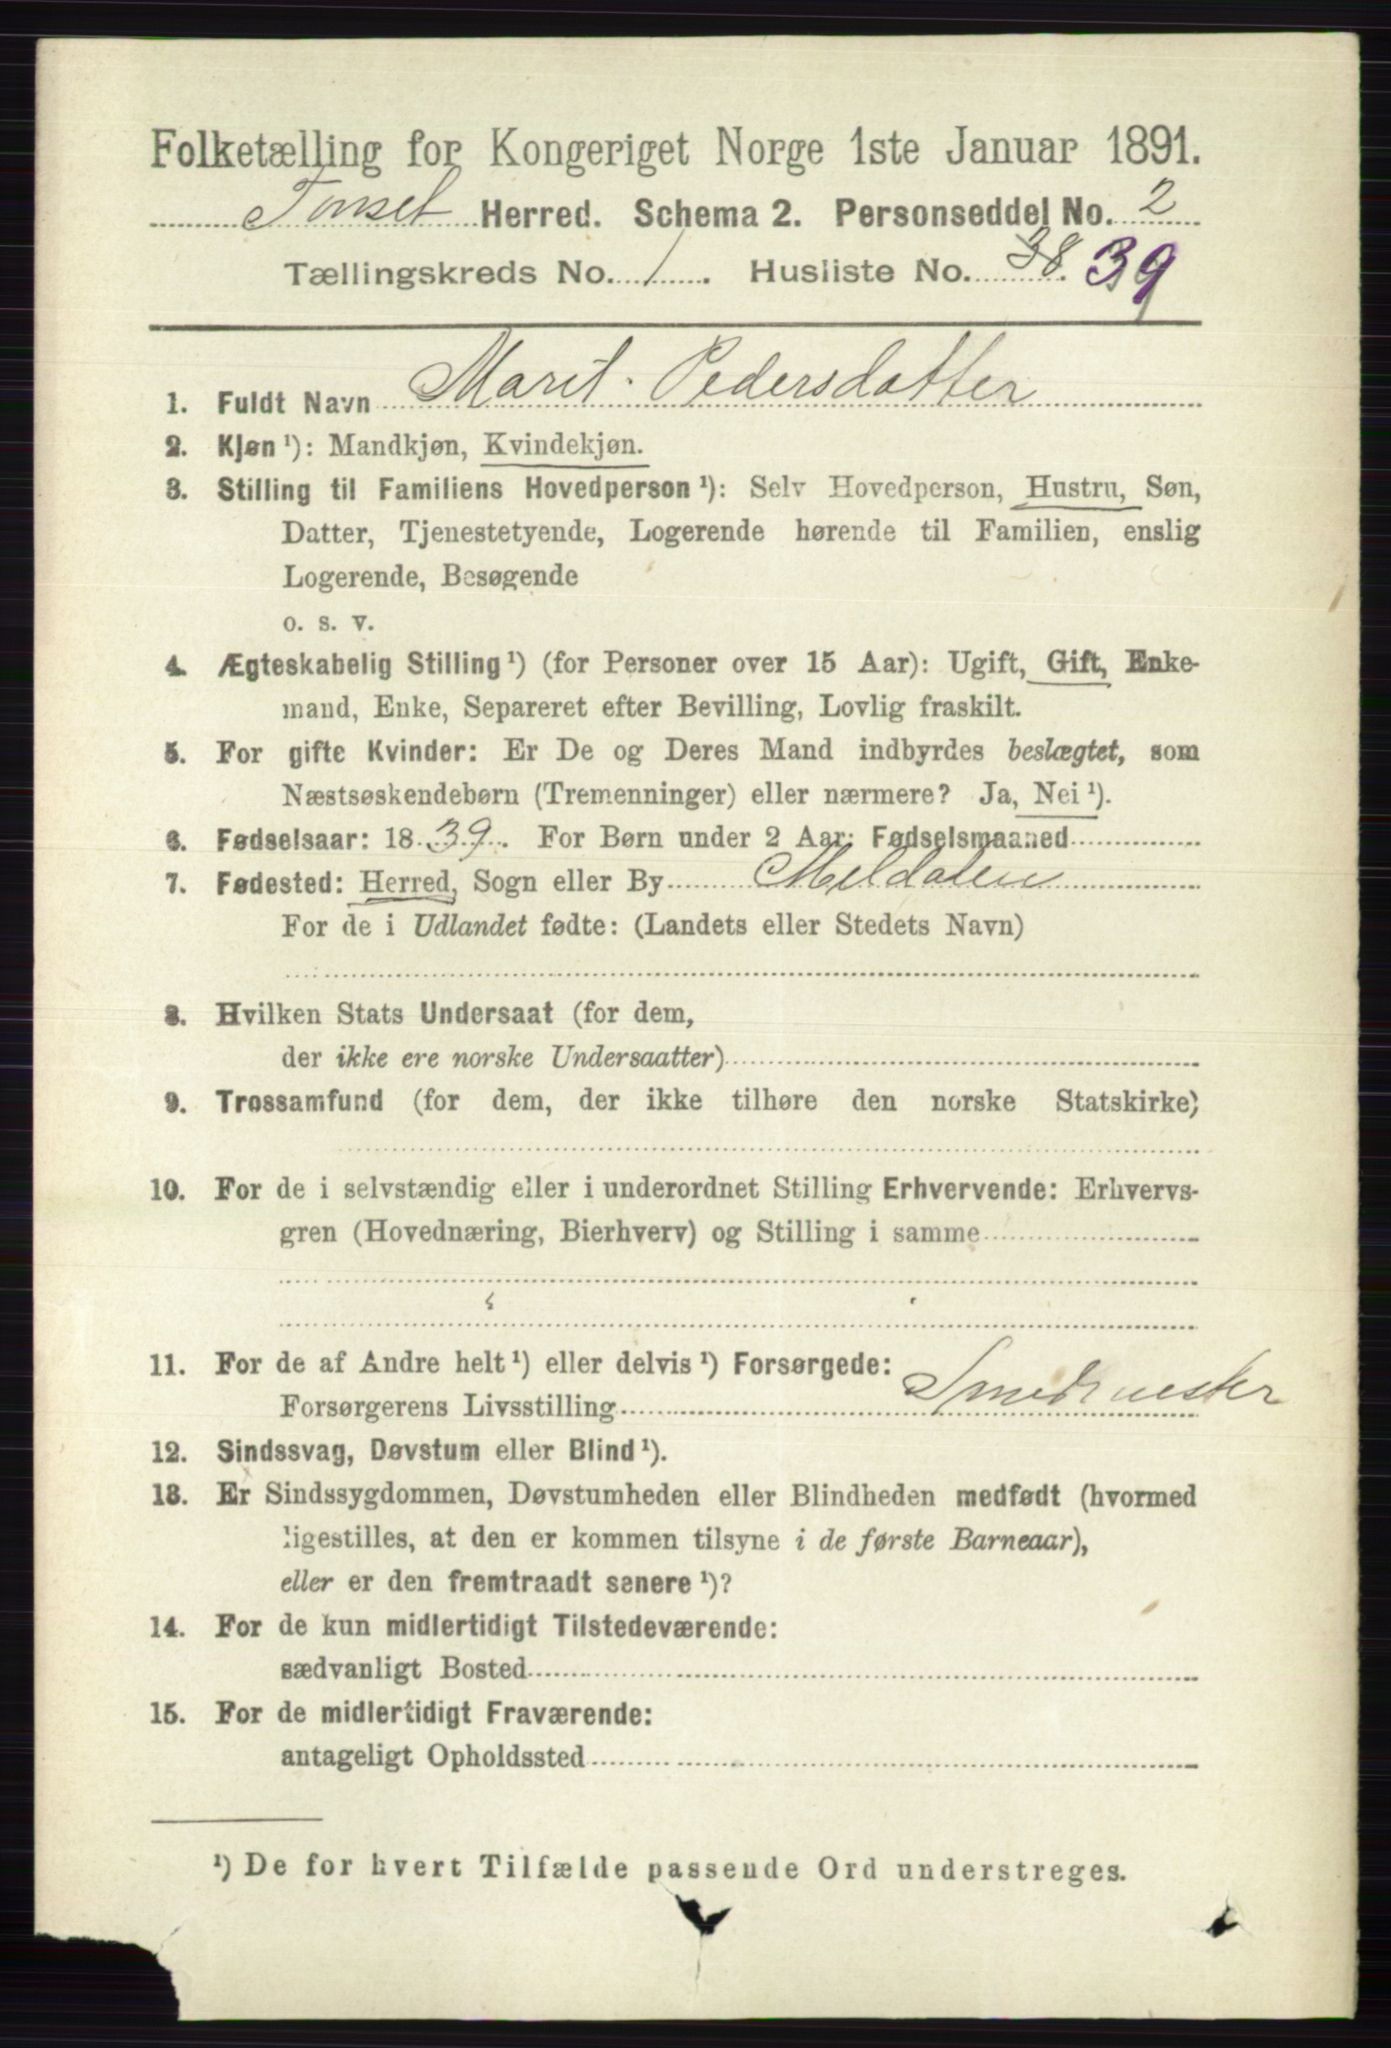 Folketælling for Kongeriget Norge 1ste Januar 1891.
Tønset Herred. Schema 2. Personseddel No. 2
Tællingskreds No. 1. Husliste No. 38. 39
1. Fuldt Navn Marit Pedersdatter
2. Kjøn ¹): Mandkjøn, Kvindekjøn.
3. Stilling til Familiens Hovedperson ¹): Selv Hovedperson, Hustru, Søn,
Datter, Tjenestetyende, Logerende hørende til Familien, enslig
Logerende, Besøgende
o. s. v.
4. Ægteskabelig Stilling ¹) (for Personer over 15 Aar): Ugift, Gift, Enke-
mand, Enke, Separeret efter Bevilling, Lovlig fraskilt.
5. For gifte Kvinder: Er De og Deres Mand indbyrdes beslægtet, som
Næstsøskendebørn (Tremenninger) eller nærmere? Ja, Nei ¹).
6. Fødselsaar: 1839. For Børn under 2 Aar: Fødselsmaaned
7. Fødested: Herred, Sogn eller By Meldalen
For de i Udlandet fødte: (Landets eller Stedets Navn)
8. Hvilken Stats Undersaat (for dem,
der ikke ere norske Undersaatter)
9. Trossamfund (for dem, der ikke tilhøre den norske Statskirke)
10. For de i selvstændig eller i underordnet Stilling Erhvervende: Erhvervs-
gren (Hovednæring, Bierhverv) og Stilling i samme
11. For de af Andre helt ¹) eller delvis ¹) Forsørgede:
Forsørgerens Livsstilling Smedmester
12. Sindssvag, Døvstum eller Blind ¹).
13. Er Sindssygdommen, Døvstumheden eller Blindheden medfødt (hvormed
ligestilles, at den er kommen tilsyne i de første Barneaar),
eller er den fremtraadt senere ¹)?
14. For de kun midlertidigt Tilstedeværende:
sædvanligt Bosted
15. For de midlertidigt Fraværende:
antageligt Opholdssted
¹) De for hvert Tilfælde passende Ord understreges.